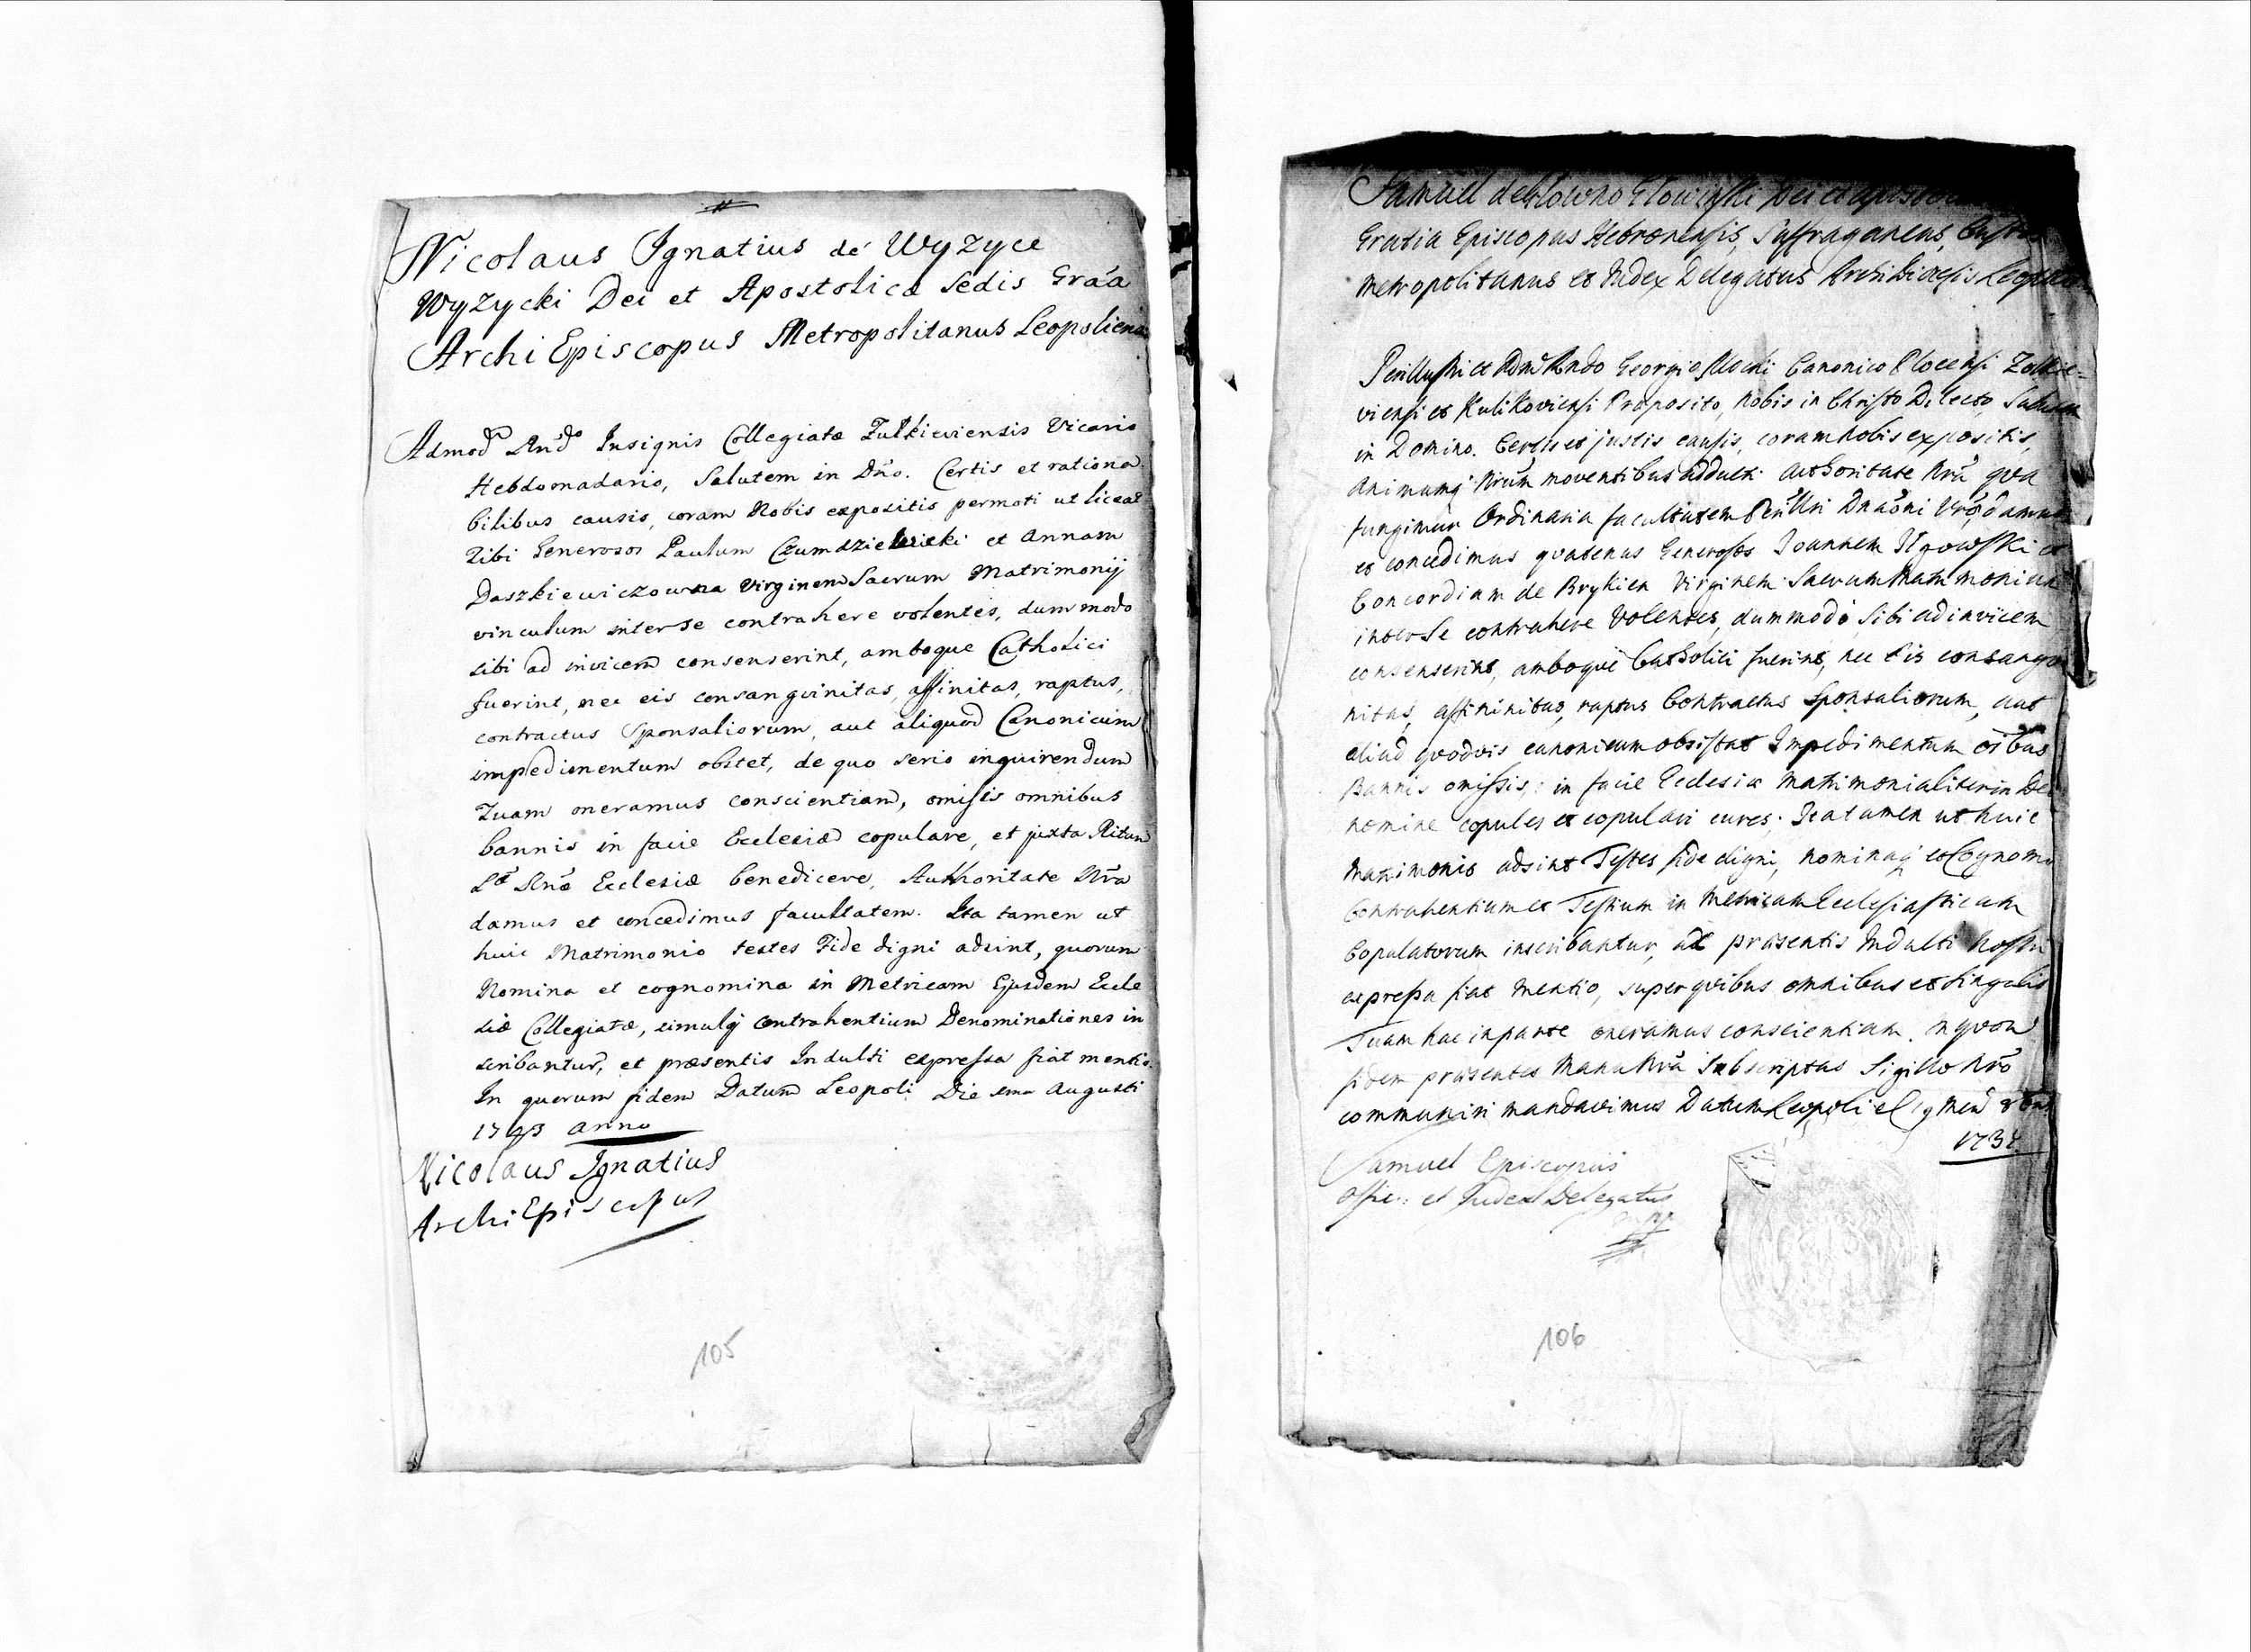 Nicolaus Ignatius de Wyzyce
Wyzycki Dei et Apostolicæ Sedis Gra̅a
Archi Episcopus Metropolitanus Leopoliensis
Admod Rndo Insignis Collegiatæ Zułkieviensis Vicario
Hebdomadario, Salutem in Dño. Certis et rationa
bilibus causis, coram Nobis expositis permoti ut liceat
Tibi Generosos Paulum et Annam
Daszkiewiczowna Virginem Sacrum Matrimonij
vinculum inter se contrahere volentes, dummodo
sibi ad invicem consenserint, amboque Catholici
fuerint, nec eis consangvinitas, affinitas, raptus,
contractus Sponsaliorum, aut aliquod Canonicum
impedimentum obstet, de quo serio inquirendum
Tuam oneramus conscientiam, omissis omnibus
bannis in facie Ecclesiæ copulare, et juxta Ritum
S. Rnæ Ecclesiæ benedicere, Authoritate Nr̃a
damus et concedimus facultatem. Ita tamen ut
huic Matrimonio testes Fide digni adsint, quorum
Nomina et cognomina in Metricam Ejusdem Eccle
siæ Collegiatæ, simulq contrahentium Denominationes in
scribantur, et præsentis Indulti expressa fiat mentio.
In quorum fidem Datum Leopoli Die Augusti
1743 anno
Nicolaus Ignatius
ArchiEpiscopus
105
Samuel de Głowno Głowinski Dei et
Gratia Episcopus Hebronensis, Suffraganeus,
Metropolitanus et Judex Delegatus ArchiDiæcesis
Perillustri et Adm Rndo Georgio Canonico Plocensi Zolkie-
viensi et Kulikoviensi Præposito, Nobis in Christo Dilecto, Salutem
in Domino. Certis et justis causis, coram Nobis expositis,
Animumq Nrũm moventibus adducti Authoritate Nrã qva
fungimur Ordinaria facultatem damus
et concedimus qvatenus Generosos Joannem Ilgowski et
Concordiam de Brykien Virginem Sacrum Matrimonium
inter Se contrahere Volentes, dummodo Sibi ad invicem
consenserint, amboqve Catholici fuerint, nec Eis consangvi
nitas, affininitas, raptus Contractus Sponsaliorum, aut
aliud qvodvis canonicum obsistat Impedimentum oïbus
Bannis omissis, in facie Ecclesiæ Matrimonialiter in Dei
nomine copules et copulari cures. Ita tamen ut huic
Matrimonio adsint Testes fide digni, nominaq et Cognomi
Contrahentium et Testium in Metricam Ecclesiasticam
Copulatorum inscribantur, ac præsentis Indulti Nostri
expressa fiat Mentio, super qvibus omnibus et Singulis
Tuam hac in parte oneramus conscientiam. In qvorũ
fidem præsentes Manu Nrã Subscriptas Sigillo Nrõ
communiri mandavimus Datum Leopoli
Samuel Episcopus
Offic: et Judex Delegatus
mpp
106